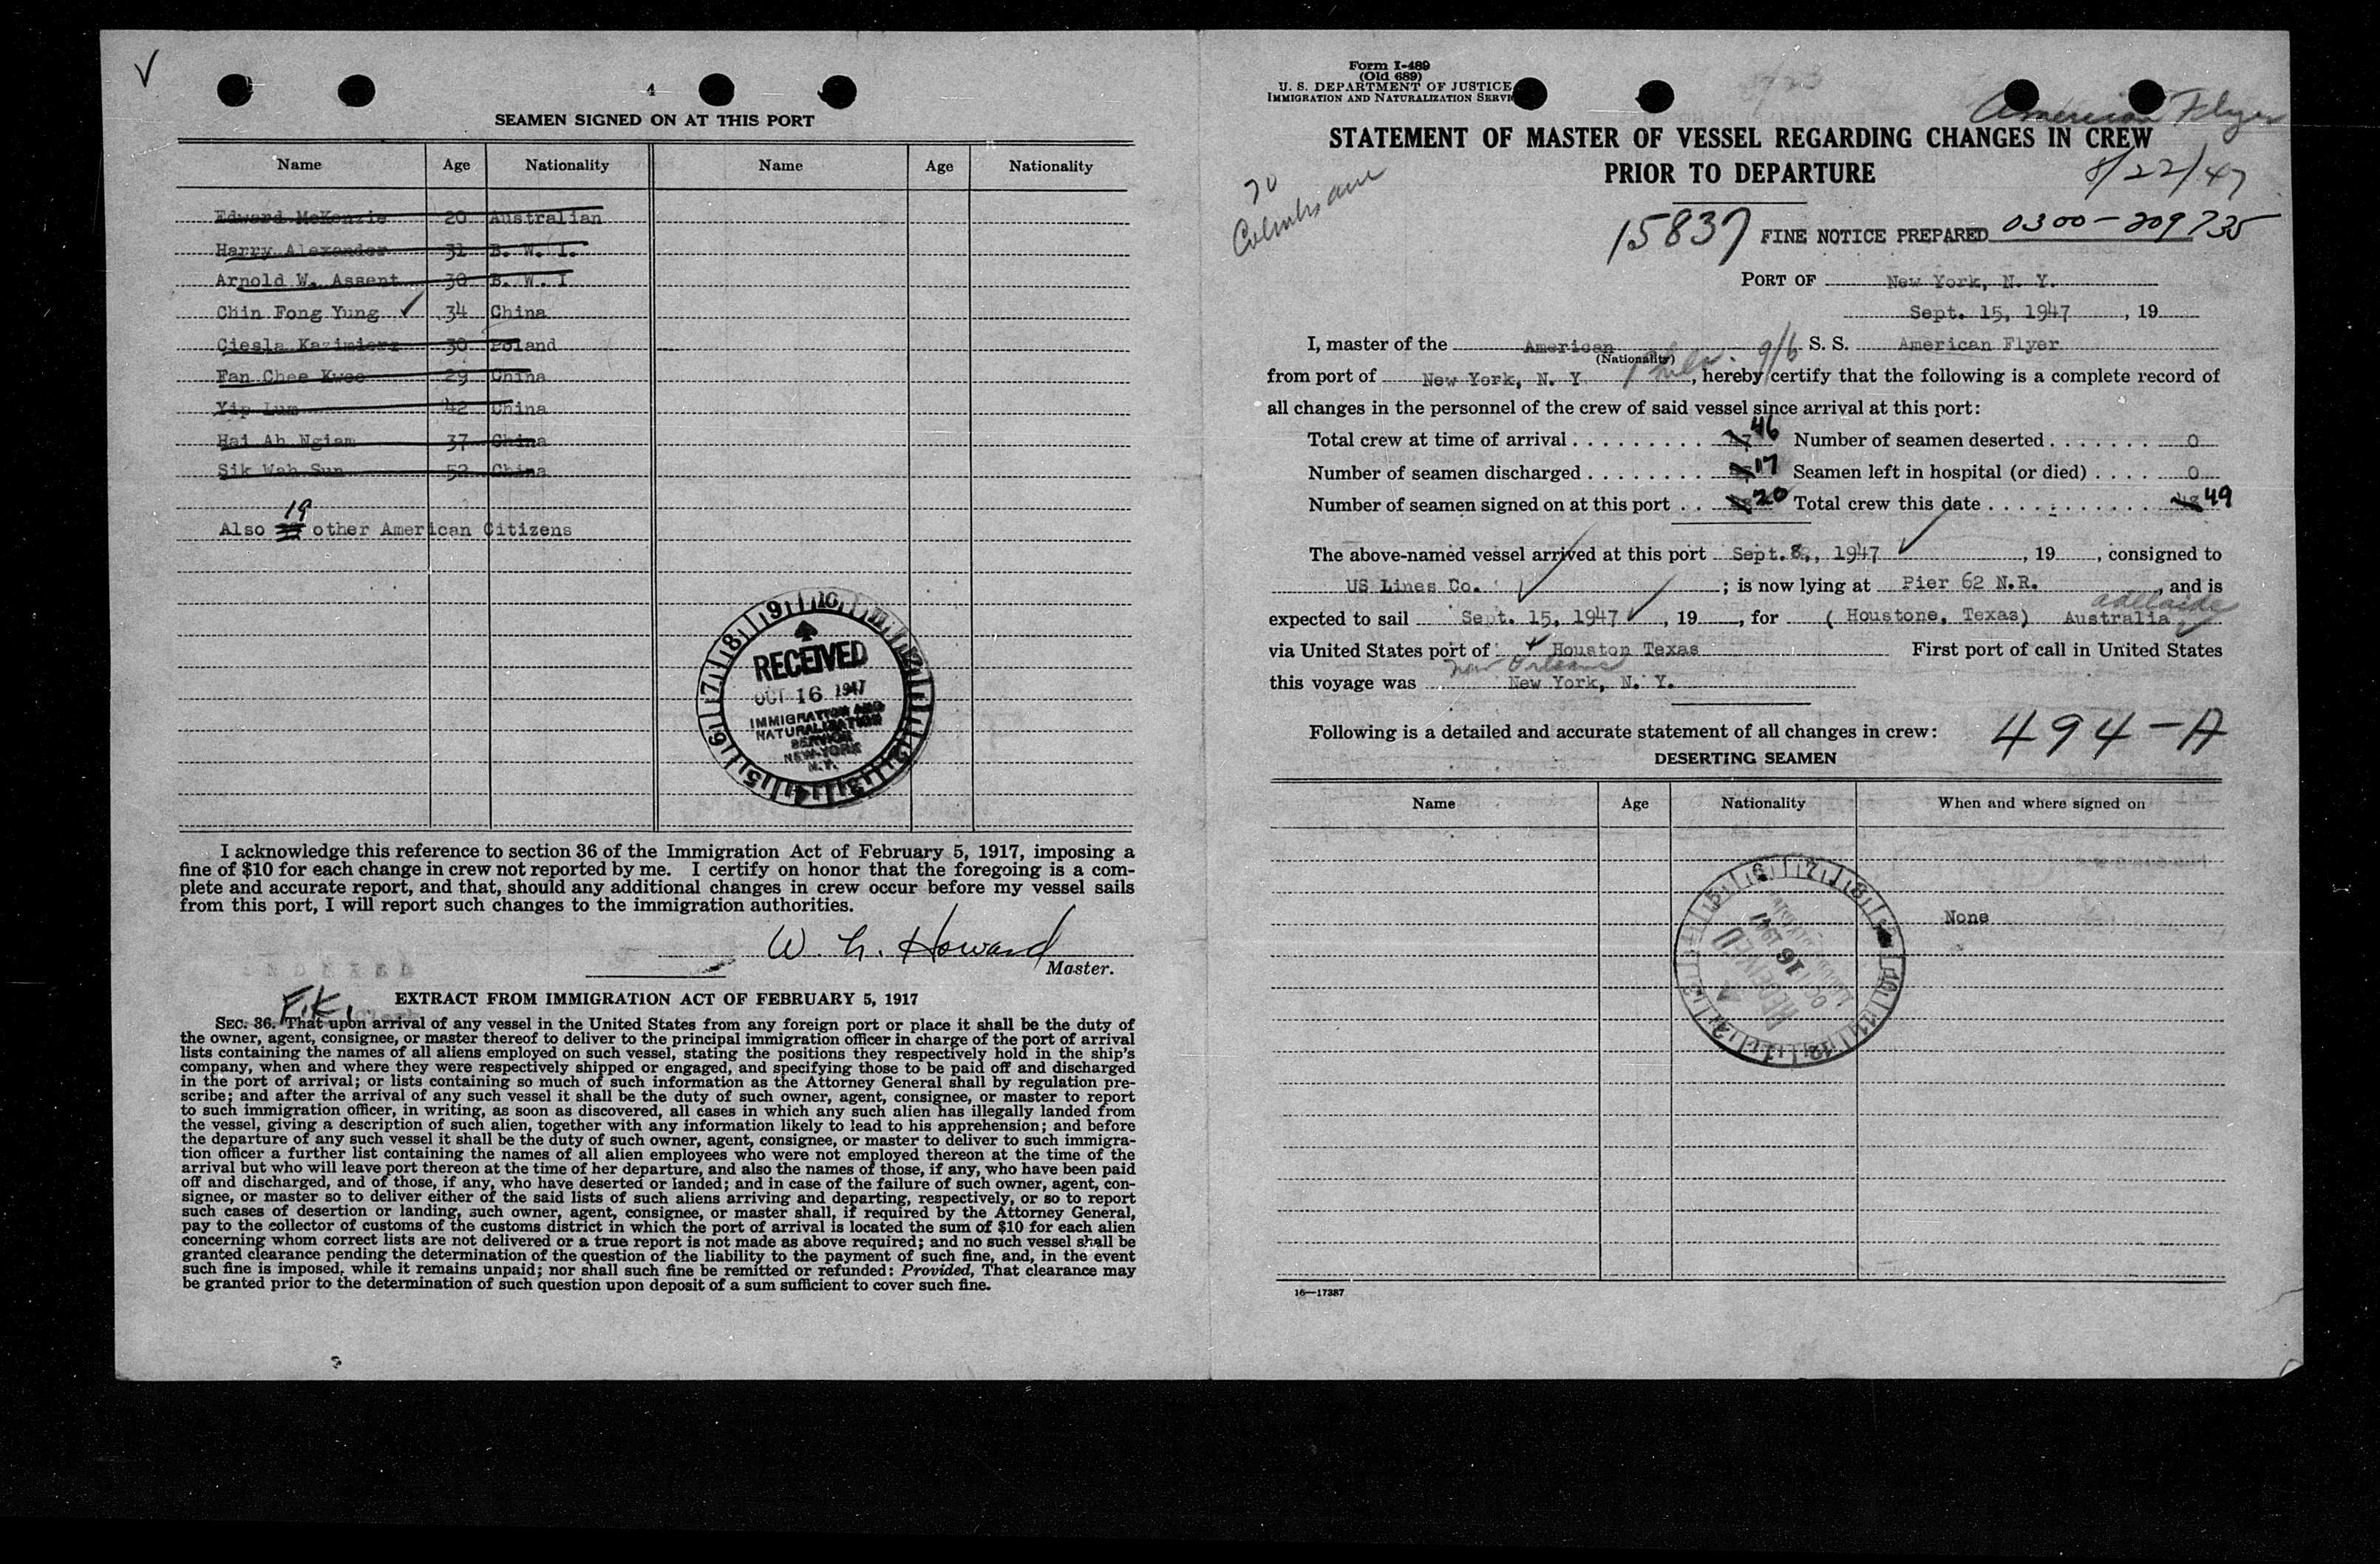 4
SEAMEN SIGNED ON AT THIS PORT
Name Age Nationality Name Age Nationality
Edward McKenzie 20 Australian
Harry Alexander 31 B. W. I.
Arnold W. Assent 30 B. W. I
Chin Fong Yung ✓ 34 China
Ciesla Kazimierz 30 Poland
Fan Chee Kwee 29 China
Yip Lum 42 China
Hai Ah Ngiam 37 China
Sik Wah Sun 52 China
19
Also other American Citizens
RECEIVED
OCT 16 1947
IMMIGRATION AND
NATURALIZATION
SERVICE
NEW YORK
N.Y.
I acknowledge this reference to section 36 of the Immigration Act of February 5, 1917, imposing a
fine of $10 for each change in crew not reported by me. I certify on honor that the foregoing is a com-
plete and accurate report, and that, should any additional changes in crew occur before my vessel sails
from this port, I will report such changes to the immigration authorities.
Howard
Master.
INDEXED
F.K.
Clerk
EXTRACT FROM IMMIGRATION ACT OF FEBRUARY 5, 1917
SEC. 36. That upon arrival of any vessel in the United States from any foreign port or place it shall be the duty of
the owner, agent, consignee, or master thereof to deliver to the principal immigration officer in charge of the port of arrival
lists containing the names of all aliens employed on such vessel, stating the positions they respectively hold in the ship's
company, when and where they were respectively shipped or engaged, and specifying those to be paid off and discharged
in the port of arrival; or lists containing so much of such information as the Attorney General shall by regulation pre-
scribe; and after the arrival of any such vessel it shall be the duty of such owner, agent, consignee, or master to report
to such immigration officer, in writing, as soon as discovered, all cases in which any such alien has illegally landed from
the vessel, giving a description of such alien, together with any information likely to lead to his apprehension; and before
the departure of any such vessel it shall be the duty of such owner, agent, consignee, or master to deliver to such immigra-
tion officer a further list containing the names of all alien employees who were not employed thereon at the time of the
arrival but who will leave port thereon at the time of her departure, and also the names of those, if any, who have been paid
off and discharged, and of those, if any, who have deserted or landed; and in case of the failure of such owner, agent, con-
signee, or master so to deliver either of the said lists of such aliens arriving and departing, respectively, or so to report
such cases of desertion or landing, such owner, agent, consignee, or master shall, if required by the Attorney General,
pay to the collector of customs of the customs district in which the port of arrival is located the sum of $10 for each alien
concerning whom correct lists are not delivered or a true report is not made as above required; and no such vessel shall be
granted clearance pending the determination of the question of the liability to the payment of such fine, and, in the event
such fine is imposed, while it remains unpaid; nor shall such fine be remitted or refunded: Provided, That clearance may
be granted prior to the determination of such question upon deposit of a sum sufficient to cover such fine.
Form I-489
(Old 689)
U. S. DEPARTMENT OF JUSTICE
IMMIGRATION AND NATURALIZATION SERVI
American Flyer
STATEMENT OF MASTER OF VESSEL REGARDING CHANGES IN CREW
PRIOR TO DEPARTURE
8/22/47
15837 FINE NOTICE PREPARED 0300-209735
PORT OF New York, N. Y.
Sept. 15, 1947, 19
I, master of the American S. S. American Flyer
(Nationality) 9/6
from port of New York, N. Y., hereby certify that the following is a complete record of
all changes in the personnel of the crew of said vessel since arrival at this port:
Total crew at time of arrival 46 Number of seamen deserted 0
Number of seamen discharged 17 Seamen left in hospital (or died) 0
Number of seamen signed on at this port 20 Total crew this date 49
The above-named vessel arrived at this port Sept. 8, 1947 ✓, 19, consigned to
US Lines Co. ✓; is now lying at Pier 62 N.R., and is
adelaide
expected to sail Sept. 15, 1947 ✓, 19, for (Houstone, Texas) Australia ✓
via United States port of ✓ Houston Texas First port of call in United States
New Orleans
this voyage was New York, N. Y.
Following is a detailed and accurate statement of all changes in crew: 494-A
DESERTING SEAMEN
Name Age Nationality When and where signed on
None
RECEIVED
OCT 16 1947
16—17387